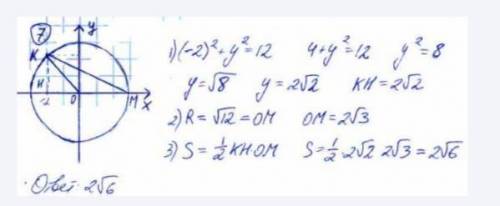 7
y
K
H
-2
0
M
x
1) (-2)²+y²=12 4+y²=12 y²=8
y=√8 y=2√2 KH=2√2
2) R=√12=OM OM=2√3
3) S=½KH·OM S=½·2√2·2√3=2√6
Ответ: 2√6